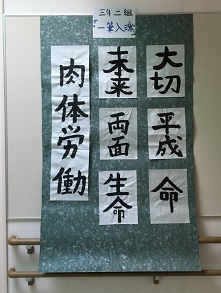 三年二組
「一筆入魂
大切
平成
命
未来
両面
生命
肉体労働